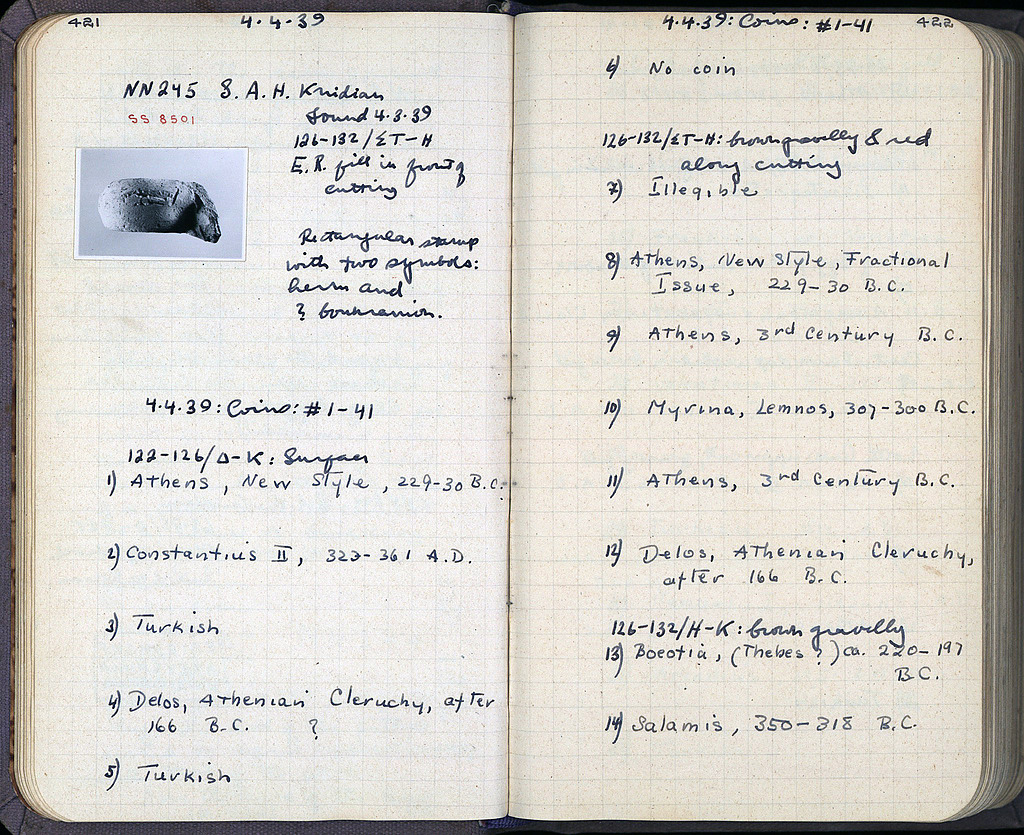 421
4.4.39
NN245 S.A.H. Knidian
SS 8501
found 4.3.39
126-132/ΣT-H
E.R. fill in front of
cutting
Rectangular stamp
with two symbols:
herm and
? boukranion.
4.4.39: Coins: #1-41
122-126/Δ-K: Surface
1) Athens, New Style, 229-30 B.C.
2) Constantius II, 323-361 A.D.
3) Turkish
4) Delos, Athenian Cleruchy, after
166 B.C. ?
5) Turkish
4.4.39: Coins: #1-41
422
6) No coin
126-132/ΣT-H: brown gravelly & red
along cutting
7) Illegible
8) Athens, New Style, Fractional
Issue, 229-30 B.C.
9) Athens, 3rd Century B.C.
10) Myrina, Lemnos, 307-300 B.C.
11) Athens, 3rd Century B.C.
12) Delos, Athenian Cleruchy,
after 166 B.C.
126-132/H-K: brown gravelly
13) Boeotia, (Thebes?) ca. 220-197
B.C.
14) Salamis, 350-318 B.C.